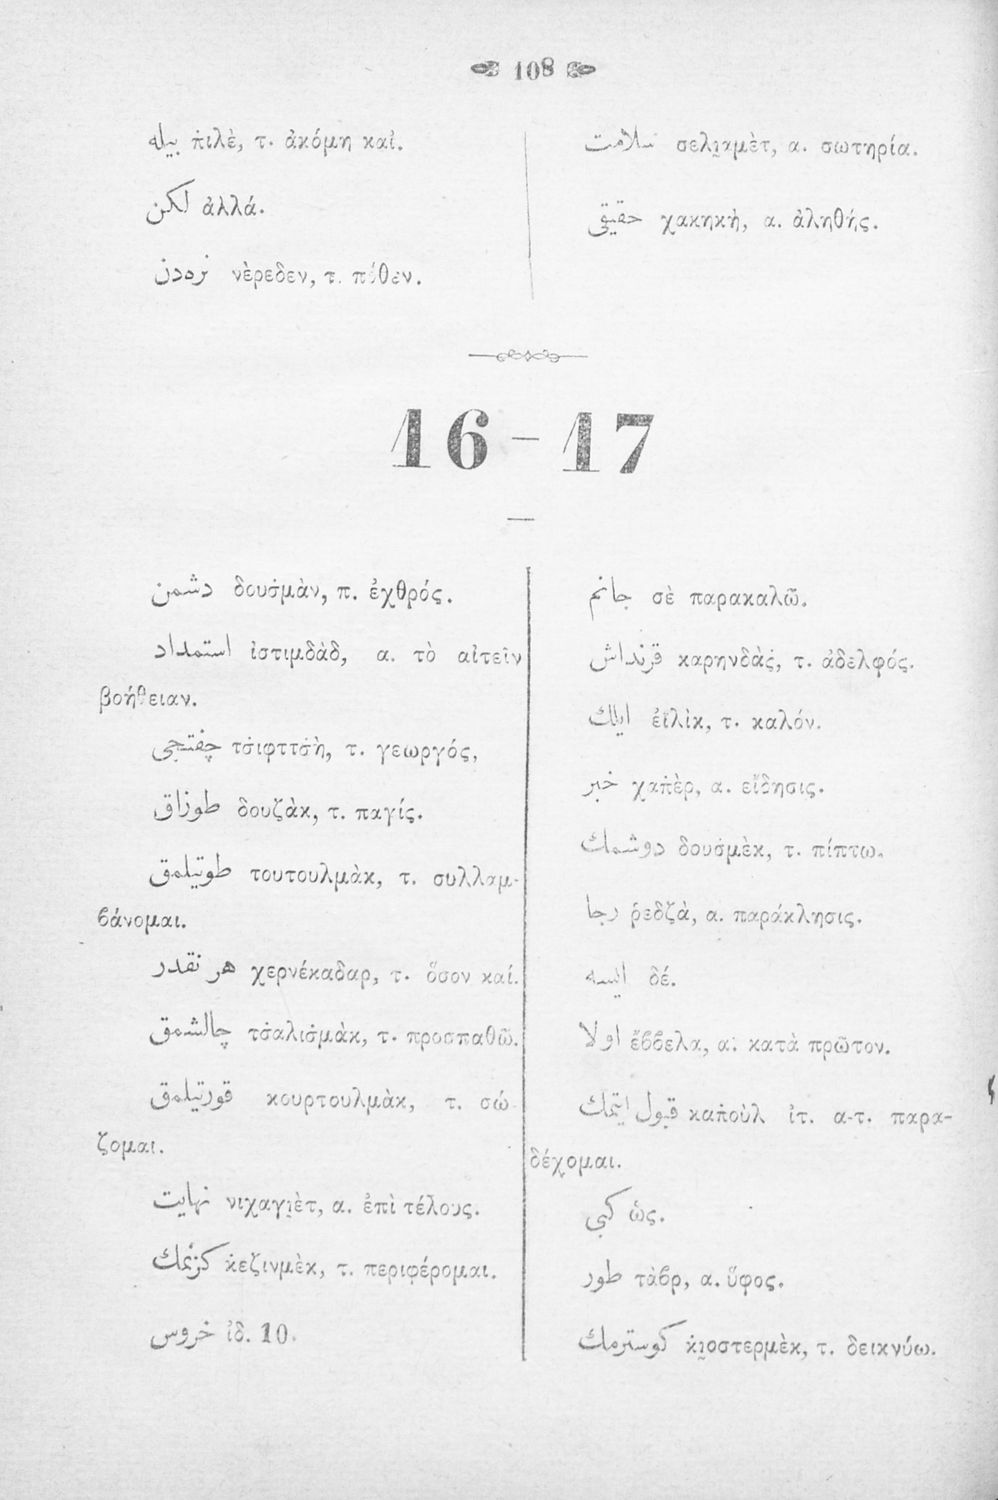 108
بيله πιλὲ, τ. ἀκόμη καὶ.
لكن ἀλλά.
نره‌دن νὲρεδεν, τ. πόθεν.
سلامت σελι̯αμὲτ, α. σωτηρία.
حقيقى χακηκὴ, α. ἀληθής.
16 – 17
دشمن δουσ̇μὰν, π. ἐχθρός.
استمداد ἰστιμδὰδ, α. τὸ αἰτεῖν
βοήθειαν.
چفتجى τσ̇ιφττσ̇ὴ, τ. γεωργός,
طوزاق δουζὰκ, τ. παγίς.
طوتيلمق τουτουλμὰκ, τ. συλλαμ-
βάνομαι.
هر نقدر χερνέκαδαρ, τ. ὅσον καί.
چالشمق τσ̇αλισ̇μὰκ, τ. προσπαθῶ.
قورتيلمق κουρτουλμὰκ, τ. σώ-
ζομαι.
نهايت νιχαγι̯ὲτ, α. ἐπὶ τέλους.
كزنمك κ̇εζινμὲκ, τ. περιφέρομαι.
خروس ἰδ. 10.
جانم σὲ παρακαλῶ.
قرنداش καρηνδὰσ̇, τ. ἀδελφός.
ايلك ἐϊλὶκ, τ. καλόν.
خبر χαπ̇ὲρ, α. εἴδησις.
دوشمك δουσ̇μὲκ, τ. πίπτω.
رجا ῥεδζὰ, α. παράκλησις.
ايسه δέ.
اولا ἔββελα, α. κατὰ πρῶτον.
قبول ايتمك καπ̇οὺλ ἰτ. α-τ. παρα-
δέχομαι.
كبى ὡς.
طور τὰβρ, α. ὕφος.
كوسترمك κ̇ι̯οστερμὲκ, τ. δεικνύω.